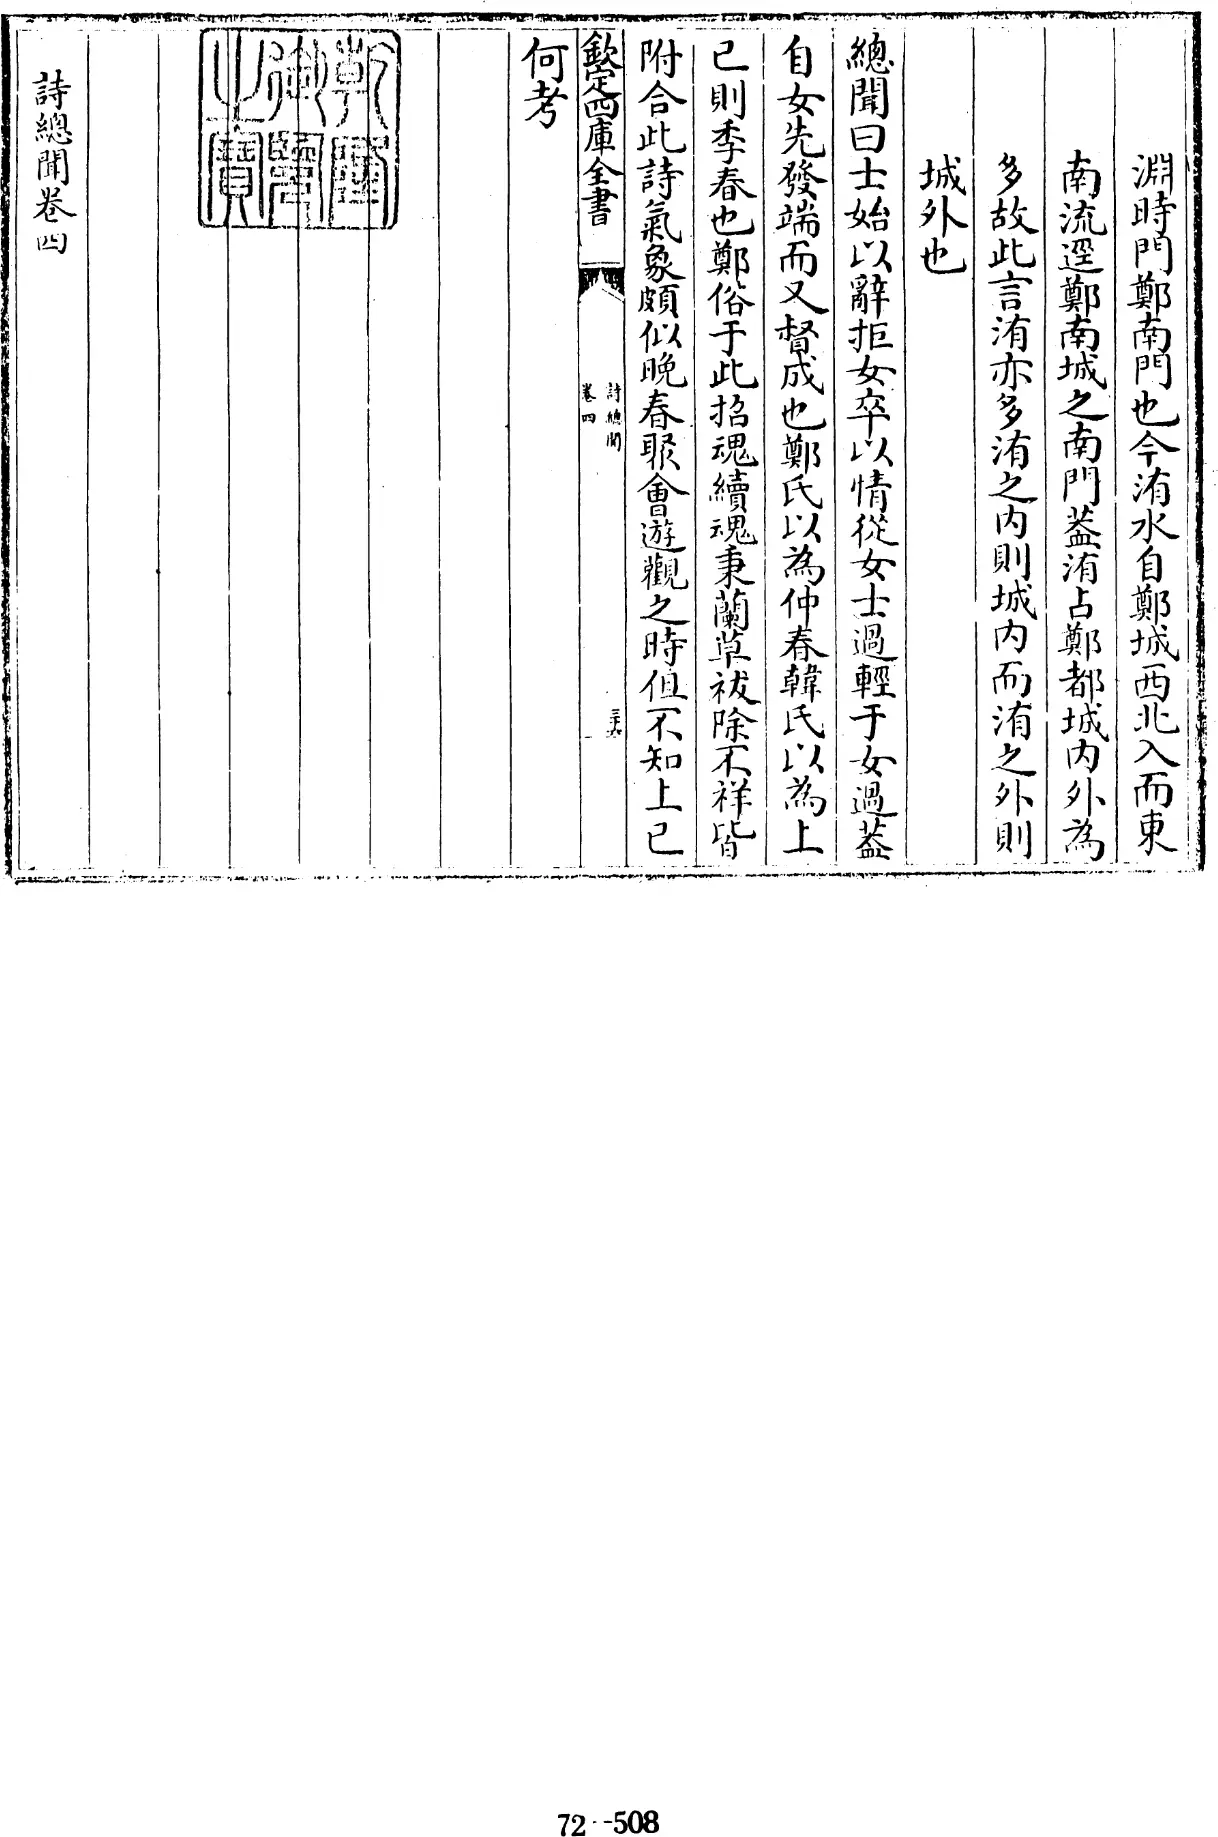 淵時門鄭南門也今洧水自鄭城西北入而東
南流逕鄭南城之南門葢洧占鄭都城内外為
多故此言洧亦多洧之内則城内而洧之外則
城外也
總聞曰士始以辭拒女卒以情從女士過輕于女過葢
自女先發端而又督成也鄭氏以為仲春韓氏以為上
已則季春也鄭俗于此招魂續魂秉蘭草祓除不祥皆
附合此詩氣象頗似晩春聚會遊觀之時但不知上已
欽定四庫全書
詩總聞
卷四
三十六
何考
乾隆御覽之寶
詩總聞卷四
72--508